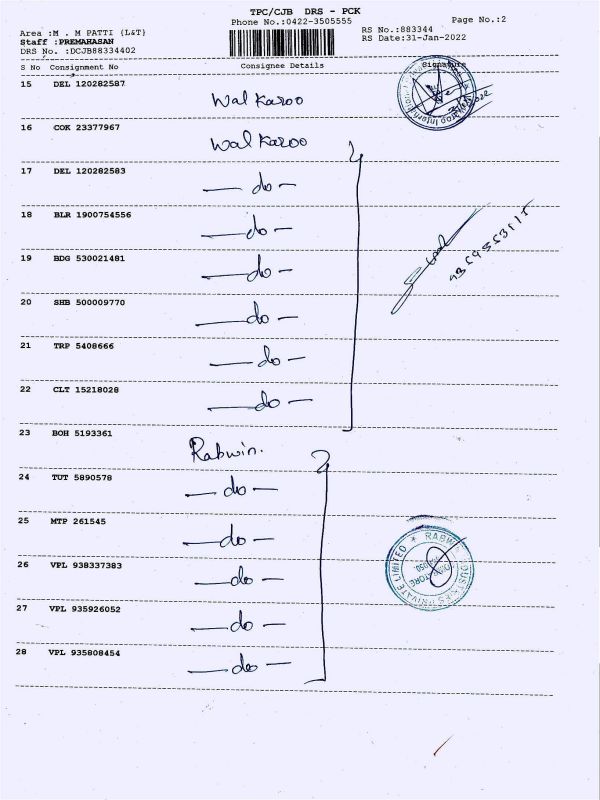 TPC/CJB DRS - PCK
Phone No.:0422-3505555
Page No.:2
Area :M . M PATTI (L&T)
RS No.:883344
Staff :PREMAHASAN
RS Date:31-Jan-2022
DRS No. :DCJB88334402
S No Consignment No Consignee Details Signature
15 DEL 120282587 Walkaroo
16 COK 23377967 Walkaroo
17 DEL 120282583 — do —
18 BLR 1900754556 — do —
19 BDG 530021481 — do —
20 SHB 500009770 — do —
21 TRP 5408666 — do —
22 CLT 15218028 — do —
23 BOH 5193361 Rabwin.
24 TUT 5890578 — do —
25 MTP 261545 — do —
26 VPL 938337383 — do —
27 VPL 935926052 — do —
28 VPL 935808454 — do —